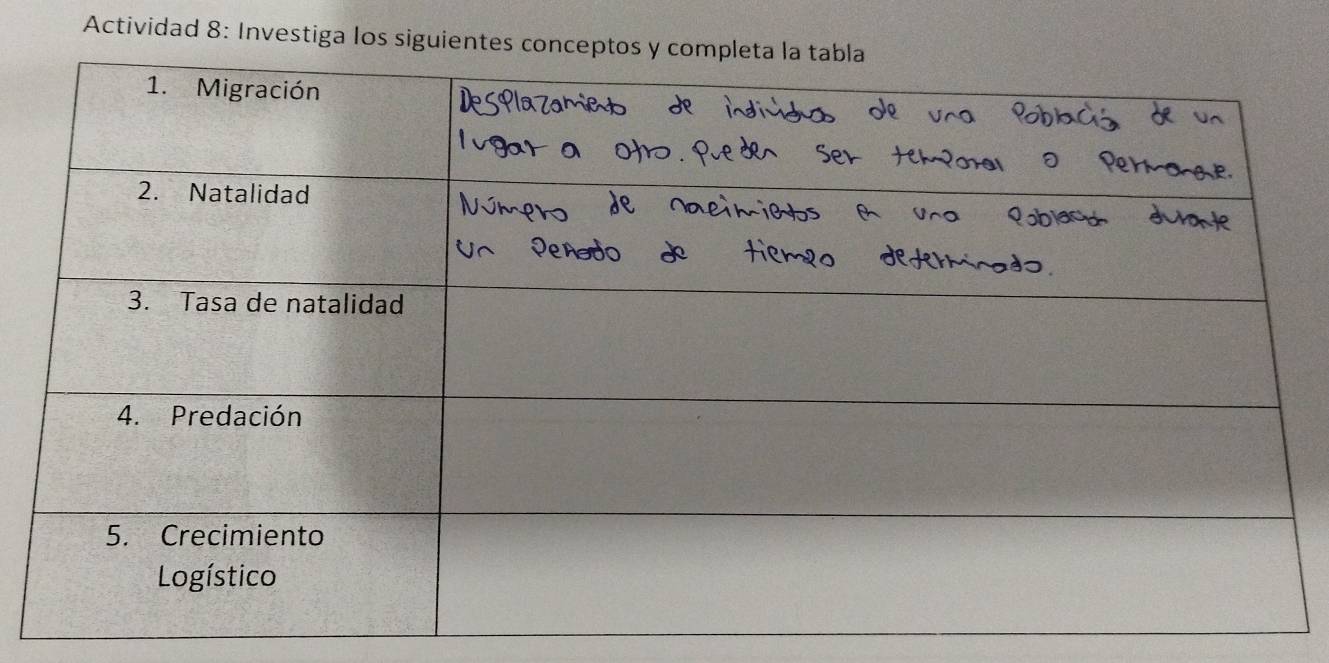 Actividad 8: Investiga los siguientes conceptos y completa la tabla
1. Migración
Desplazamiento de individuos de una Població de un
lugar a otro. Pueden ser temporal o Permanete.
2. Natalidad
Número de nacimientos en una Población durante
un Periodo de tiempo determinado.
3. Tasa de natalidad
4. Predación
5. Crecimiento
Logístico